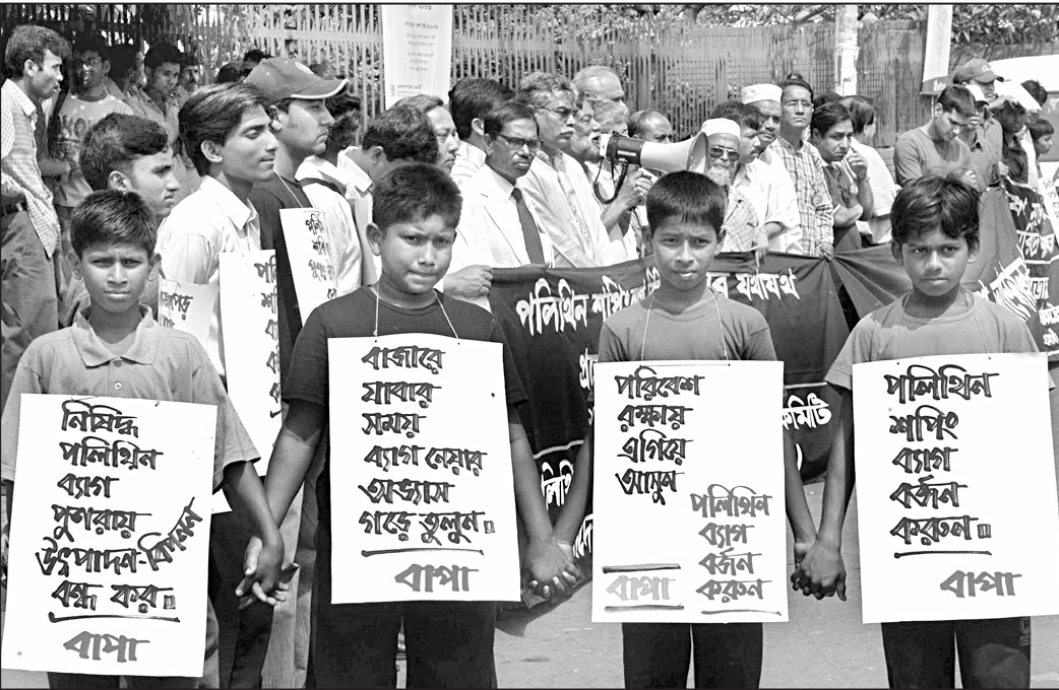 নিষিদ্ধ
পলিথিন
ব্যাগ
পুণরায়
উৎপাদন-বিপনন
বন্ধ কর।
বাপা
বাজারে
যাবার
সময়
ব্যাগ নেয়ার
অভ্যাস
গড়ে তুলুন।
বাপা
পরিবেশ
রক্ষায়
এগিয়ে
আসুন
পলিথিন
ব্যাগ
বর্জন
করুন
বাপা
পলিথিন
শপিং
ব্যাগ
বর্জন
করুন।
বাপা
পলিথিন শপিং যথাযথ